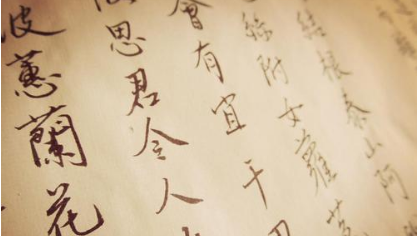 結根泰山阿
絲附女蘿
會有宜千
思君令人
彼蕙蘭花